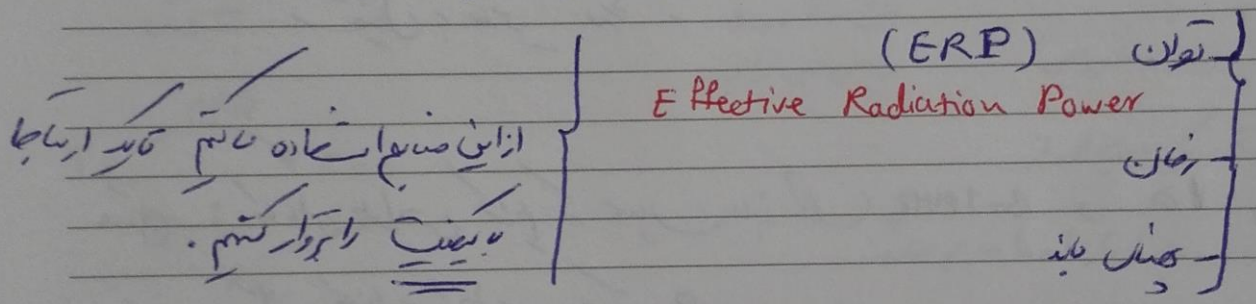 توان (ERP)
Effective Radiation Power
زمان
پهنای باند
از این منابع استفاده می‌کنیم تا یک ارتباط
با کیفیت را برقرار کنیم.